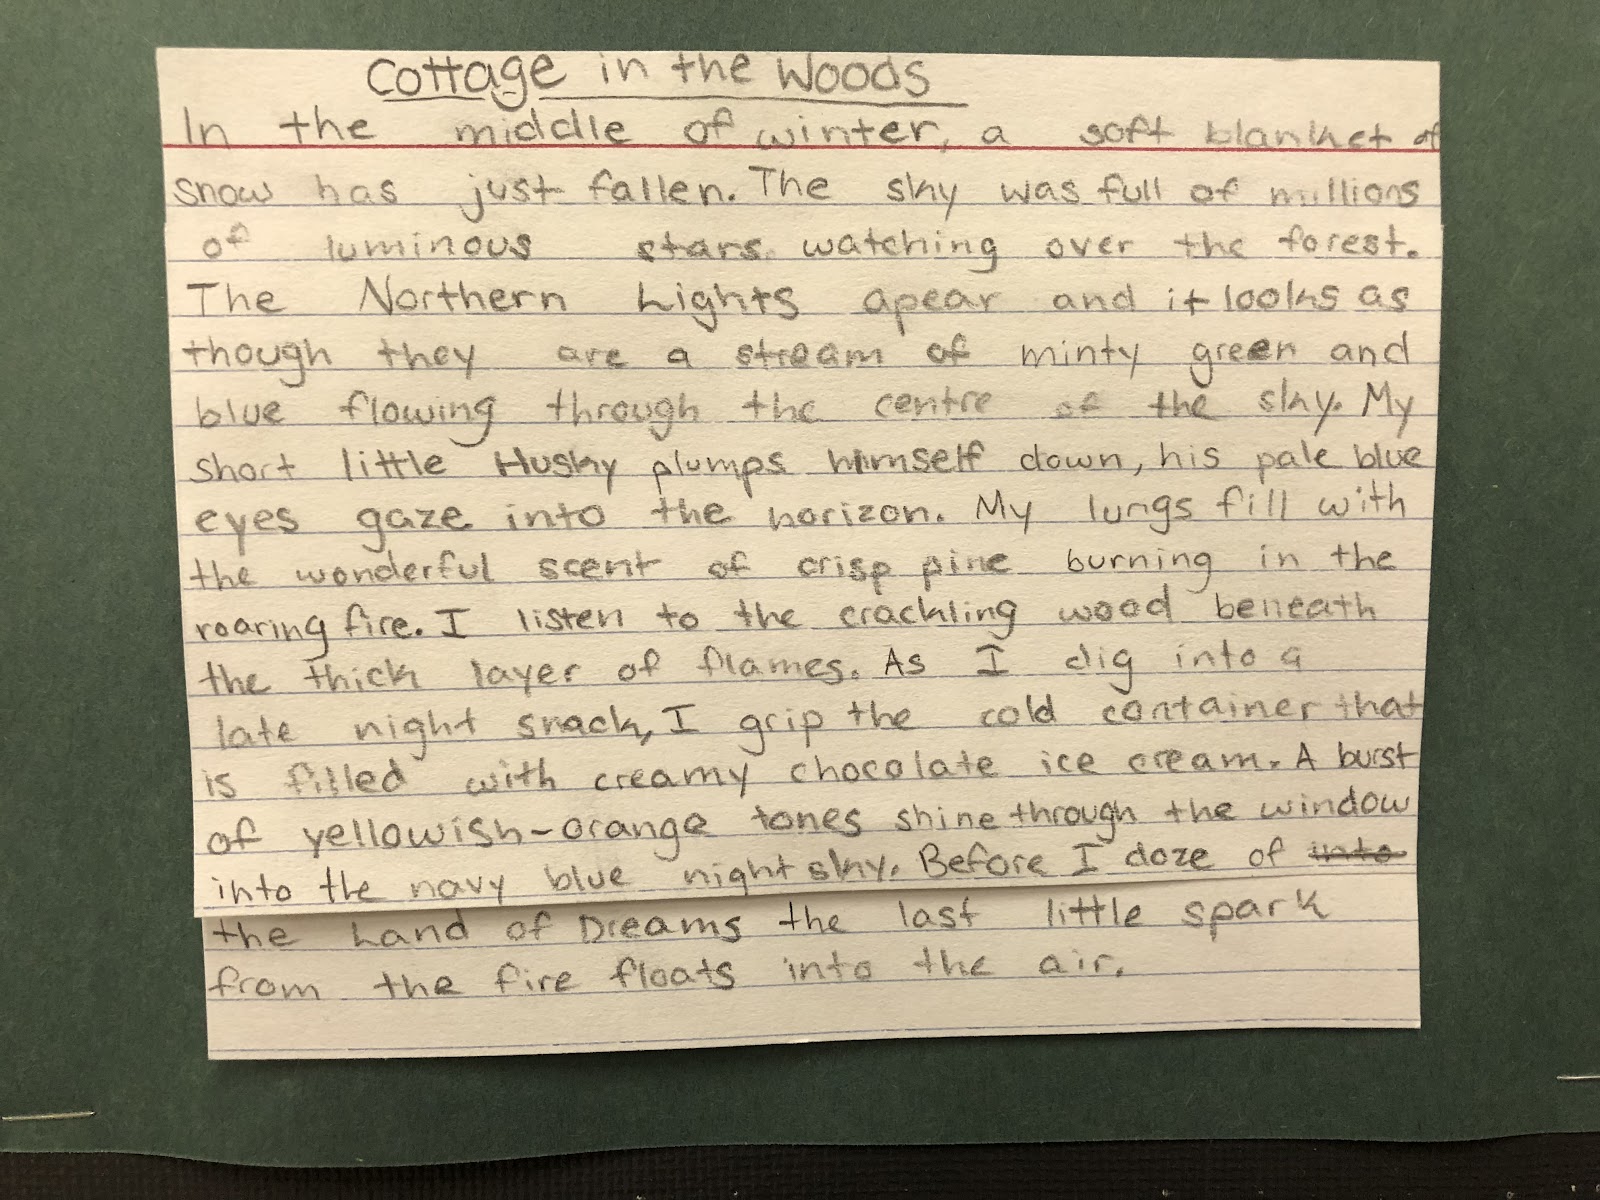 Cottage in the Woods
In the middle of winter, a soft blanket of
snow has just fallen. The sky was full of millions
of luminous stars watching over the forest.
The Northern Lights apear and it looks as
though they are a stream of minty green and
blue flowing through the centre of the sky. My
short little Husky plumps himself down, his pale blue
eyes gaze into the horizon. My lungs fill with
the wonderful scent of crisp pine burning in the
roaring fire. I listen to the crackling wood beneath
the thick layer of flames. As I dig into a
late night snack, I grip the cold container that
is filled with creamy chocolate ice cream. A burst
of yellowish-orange tones shine through the window
into the navy blue night sky. Before I doze of into
the Land of Dreams the last little spark
from the fire floats into the air.